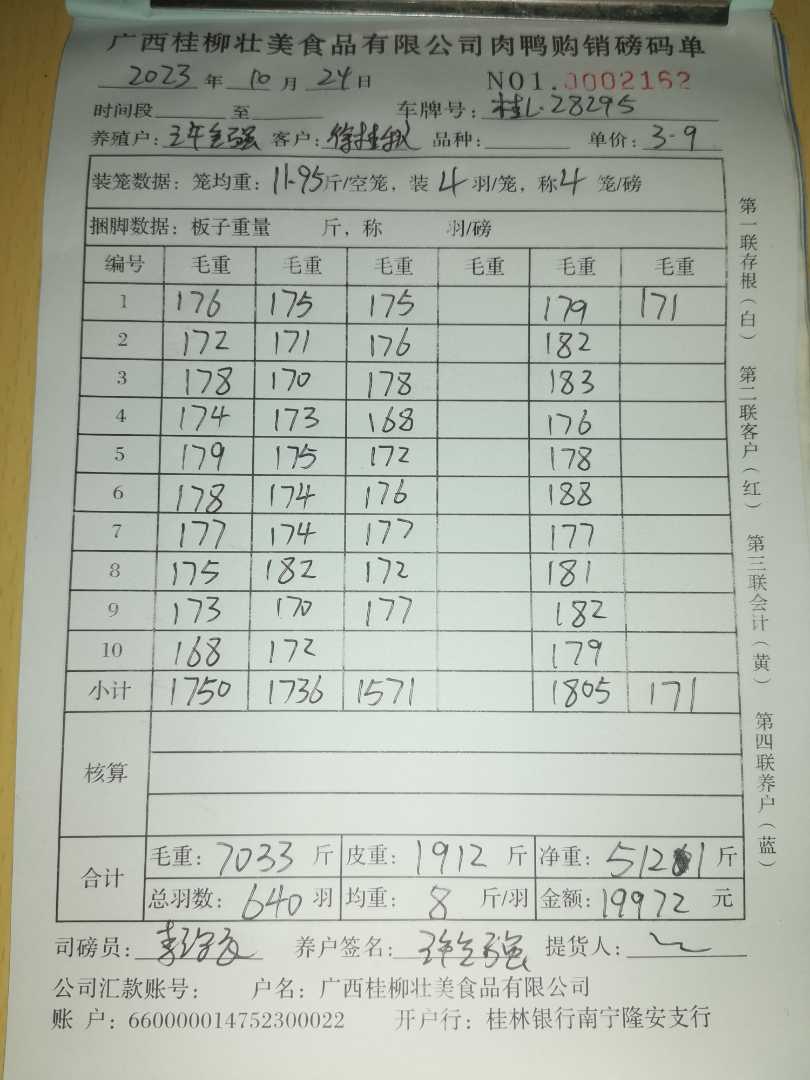 广西桂柳壮美食品有限公司肉鸭购销磅码单
2023 年 10 月 24 日 NO1.0002162
时间段 至 车牌号: 桂L·28295
养殖户: 强 客户: 徐桂 品种: 单价: 3-9
装笼数据: 笼均重: 11.95 斤/空笼, 装 4 羽/笼, 称 4 笼/磅
捆脚数据: 板子重量 斤, 称 羽/磅
编号 毛重 毛重 毛重 毛重 毛重 毛重
1 176 175 175 179 171
2 172 171 176 182
3 178 170 178 183
4 174 173 168 176
5 179 175 172 178
6 178 174 176 188
7 177 174 177 177
8 175 182 172 181
9 173 170 177 182
10 168 172 179
小计 1750 1736 1571 1805 171
核算
合计
毛重: 7033 斤 皮重: 1912 斤 净重: 5121 斤
总羽数: 640 羽 均重: 8 斤/羽 金额: 19972 元
司磅员: 李 养户签名: 强 提货人:
公司汇款账号: 户名: 广西桂柳壮美食品有限公司
账 户: 660000014752300022 开户行: 桂林银行南宁隆安支行
第一联存根(白) 第二联客户(红) 第三联会计(黄) 第四联养户(蓝)